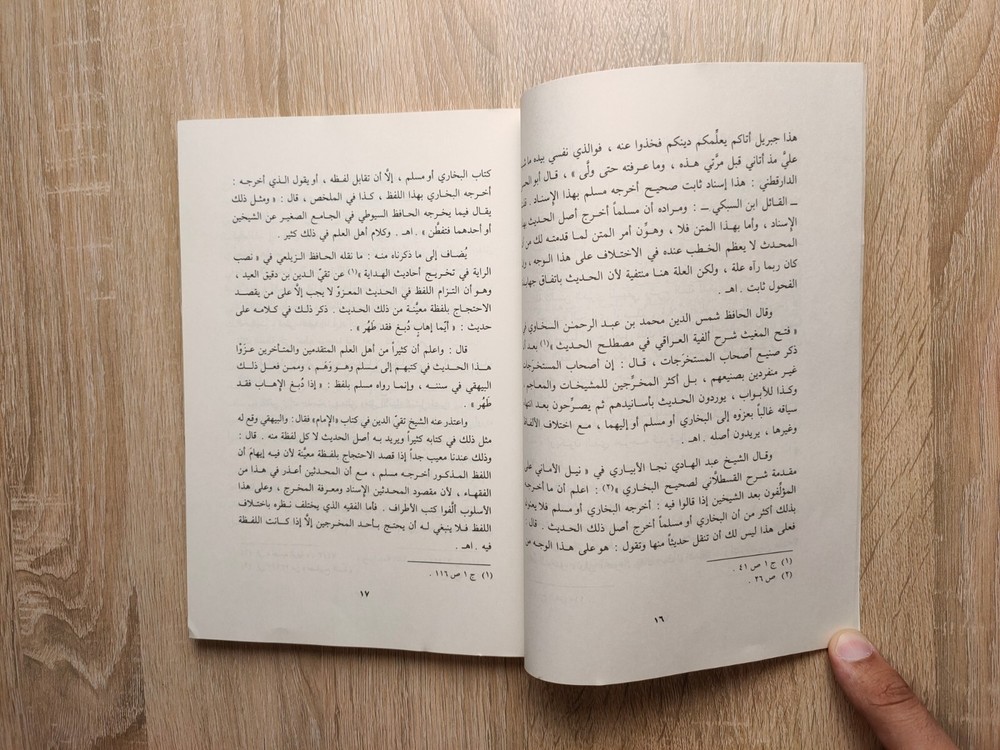 هذا جبريل أتاكم يعلِّمكم دينكم فخذوا عنه ، فوالذي نفسي بيده ما
عليَّ مذ أتاني قبل مرَّتي هذه ، وما عرفته حتى ولَّى » ، قال أبو
الدارقطني : هذا إسناد ثابت صحيح أخرجه مسلم بهذا الإسناد .
ــ القائل ابن السبكي ــ : ومراده أن مسلماً أخرج أصل الحديث
الإسناد ، وأما بهذا المتن فلا ، وهوَّن أمر المتن لما قدمته لك من
المحدث لا يعظم الخطب عنده في الاختلاف على هذا الوجه ،
كان ربما رآه علة ، ولكن العلة هنا منتفية لأن الحديث باتفاق
الفحول ثابت . اهـ .
وقال الحافظ شمس الدين محمد بن عبد الرحمن السخاوي
« فتح المغيث شرح ألفية العراقي في مصطلح الحديث »(١) بعد
ذكر صنيع أصحاب المستخرجات ، قال : إن أصحاب
غير منفردين بصنيعهم ، بل أكثر المخرِّجين للمشيخات والمعاجم
وكذا للأبواب ، يوردون الحديث بأسانيدهم ثم يصرِّحون بعد
سياقه غالباً بعزوه إلى البخاري أو مسلم أو إليهما ، مع اختلاف
وغيرها ، يريدون أصله . اهـ .
وقال الشيخ عبد الهادي نجا الأبياري في « نيل الأماني
مقدمة شرح القسطلَّاني لصحيح البخاري »(٢) : اعلم أن ما
المؤلِّفون بعد الشيخين إذا قالوا فيه : أخرجه البخاري أو مسلم فلا
بذلك أكثر من أن البخاري أو مسلماً أخرج أصل ذلك الحديث . قال
فعلى هذا ليس لك أن تنقل حديثاً منها وتقول : هو على هذا الوجه
(١) ج ١ ص ٤١ .
(٢) ص ٢٦ .
١٦
كتاب البخاري أو مسلم ، إلَّا أن تقابل لفظه ، أو يقول الذي أخرجه :
أخرجه البخاري بهذا اللفظ ، كذا في الملخص ، قال : « ومثل ذلك
يقال فيما يخرجه الحافظ السيوطي في الجامع الصغير عن الشيخين
أو أحدهما فتفطَّن » . اهـ . وكلام أهل العلم في ذلك كثير .
يُضاف إلى ما ذكرناه منه : ما نقله الحافظ الزيلعي في « نصب
الراية في تخريج أحاديث الهداية »(١) عن تقيّ الدين بن دقيق العيد ،
وهو أن التزام اللفظ في الحديث المعزوّ لا يجب إلَّا على من يقصد
الاحتجاج بلفظة معيَّنة من ذلك الحديث . ذكر ذلك في كلامه على
حديث : « أيّما إهابٍ دُبغ فقد طَهُر » .
قال : واعلم أن كثيراً من أهل العلم المتقدمين والمتأخرين عزَوْا
هذا الحديث في كتبهم إلى مسلم وهو وَهَم ، وممن فعل ذلك
البيهقي في سننه ، وإنما رواه مسلم بلفظ : « إذا دُبغ الإهاب فقد
طَهُر » .
واعتذر عنه الشيخ تقيّ الدين في كتاب «الإمام» فقال: والبيهقي وقع له
مثل ذلك في كتابه كثيراً ويريد به أصل الحديث لا كل لفظة منه . قال :
وذلك عندنا معيب جداً إذا قصد الاحتجاج بلفظة معيَّنة لأن فيه إيهامَ أن
اللفظ المذكور أخرجه مسلم ، مع أن المحدثين أعذر في هذا من
الفقهاء ، لأن مقصود المحدثين الإسناد ومعرفة المخرج ، وعلى هذا
الأسلوب ألَّفوا كتب الأطراف . فأما الفقيه الذي يختلف نظره باختلاف
اللفظ فلا ينبغي له أن يحتج بأحد المخرجين إلَّا إذا كانت اللفظة
فيه . اهـ .
(١) ج ١ ص ١١٦ .
١٧